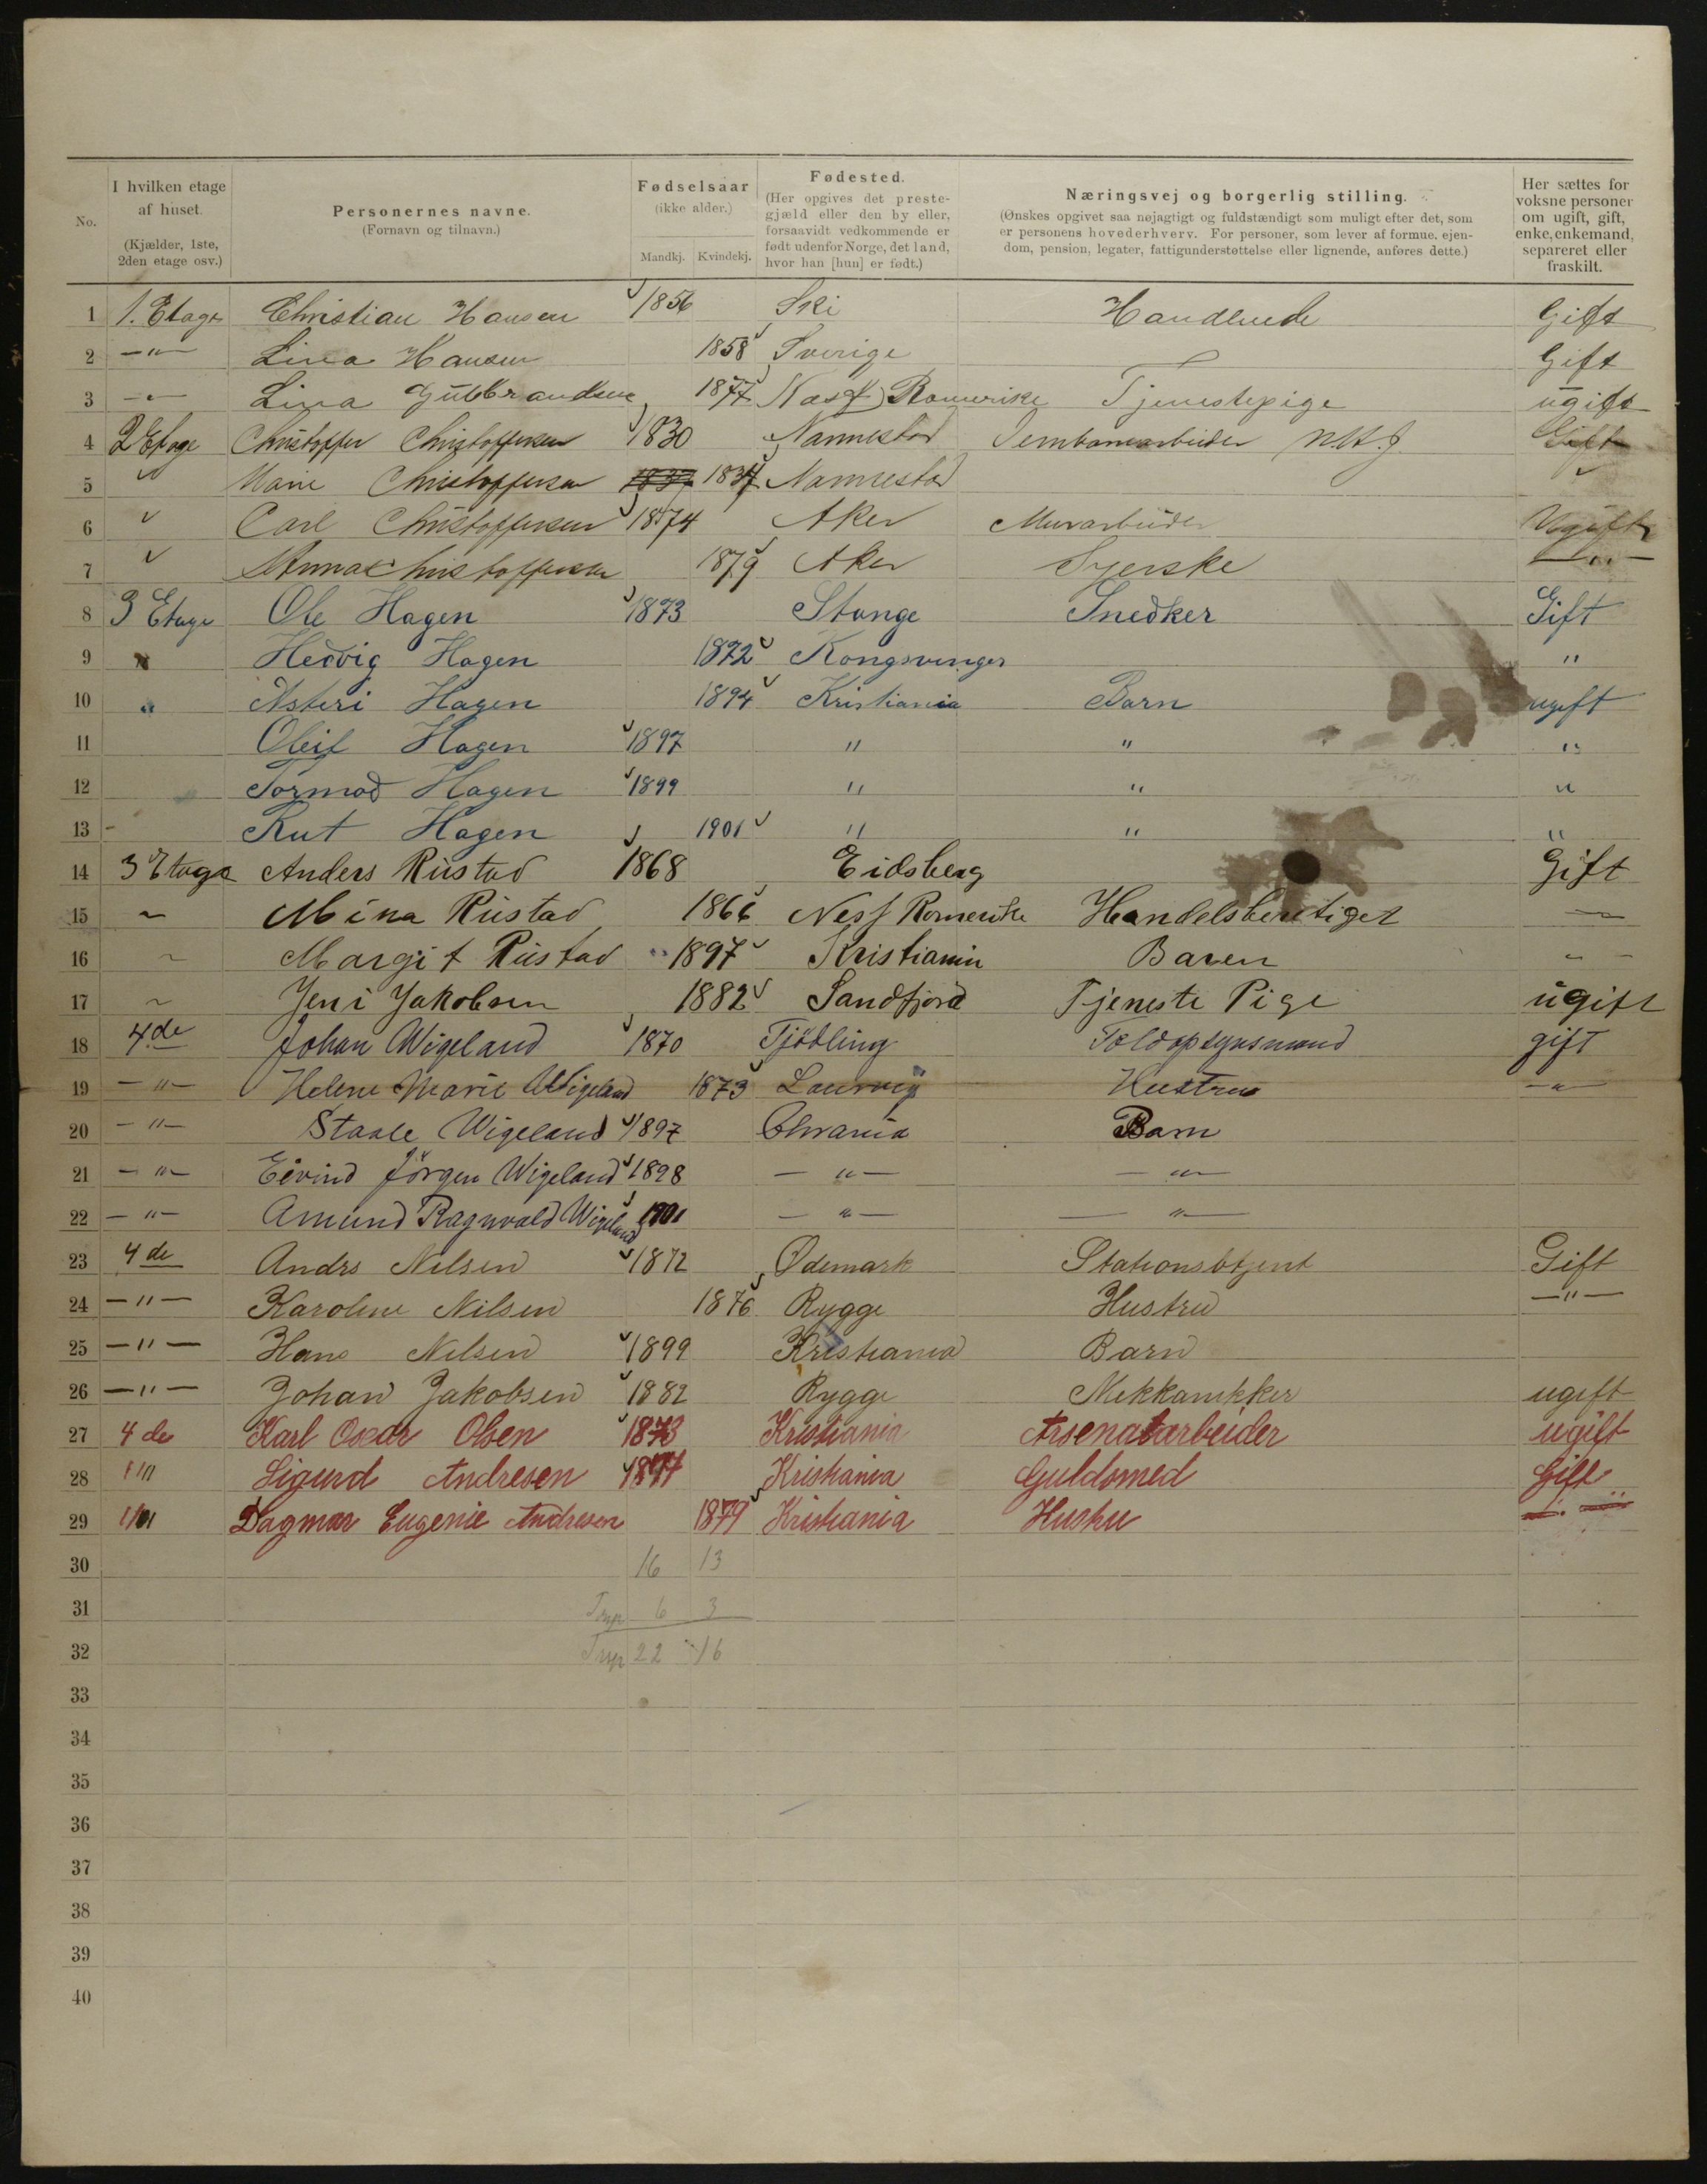 No.
I hvilken etage af huset. (Kjælder, 1ste, 2den etage osv.)
Personernes navne. (Fornavn og tilnavn.)
Fødselsaar (ikke alder.) Mandkj. Kvindekj.
Fødested. (Her opgives det prestegjæld eller den by eller, forsaavidt vedkommende er født udenfor Norge, det land, hvor han [hun] er født.)
Næringsvej og borgerlig stilling. (Ønskes opgivet saa nøjagtigt og fuldstændigt som muligt efter det, som er personens hovederhverv. For personer, som lever af formue, ejendom, pension, legater, fattigunderstøttelse eller lignende, anføres dette.)
Her sættes for voksne personer om ugift, gift, enke, enkemand, separeret eller fraskilt.
1 1. Etage Christian Hansen 1856 Ski Handlende Gift
2 —"— Lina Hansen 1858 Sverige Gift
3 —"— Lina Gulbrandsen 1877 Næs Romerike Tjenestepige ugift
4 2 Etage Christoffer Christoffersen 1830 Nannestad Jernbanearbeider Gift
5 " Marie Christoffersen 1837 Nannestad "
6 " Carl Christoffersen 1874 Aker Murarbeider Ugift
7 " Anna Christoffersen 1879 Aker Syerske —"—
8 3 Etage Ole Hagen 1873 Stange Snedker Gift
9 " Hedvig Hagen 1872 Kongsvinger "
10 " Asteri Hagen 1894 Kristiania Barn ugift
11 Oleif Hagen 1897 " " "
12 Tormod Hagen 1899 " " "
13 Rut Hagen 1901 " " "
14 3 Etage Anders Rustad 1868 Eidsberg Gift
15 ~ Mina Rustad 1866 Nes Romerike Handelsberetiget —
16 ~ Margit Rustad 1897 Kristianin Baren - -
17 ~ Jeni Jakobsen 1882 Sandfjord Tjeneste Pige ugift
18 4de Johan Wigeland 1870 Tjödling Toldopsynsmand gift
19 —"— Helene Marie Wigeland 1873 Laurvig Hustru —"—
20 —"— Staale Wigeland 1897 Chrania Barn
21 —"— Eivind Jörgen Wigeland 1898 —"— —"—
22 —"— Amund Ragnvald Wigeland 1901 —"— —"—
23 4de Andrs Nilsen 1872 Ødemark Stationsbtjent Gift
24 —"— Karoline Nilsen 1876 Rygge Hustru —"—
25 —"— Hans Nilsen 1899 Kristiania Barn
26 —"— Johan Jakobsen 1882 Rygge Mekkanikker ugift
27 4de Karl Oscar Olsen 1873 Kristiania Arsenalarbeider ugift
28 "" Sigurd Andresen 1877 Kristiania Guldsmed Gift
29 "" Dagmar Eugenie Andresen 1879 Kristiania Hustru —"—
30 16 13
31 6 3
32 22 16
33
34
35
36
37
38
39
40